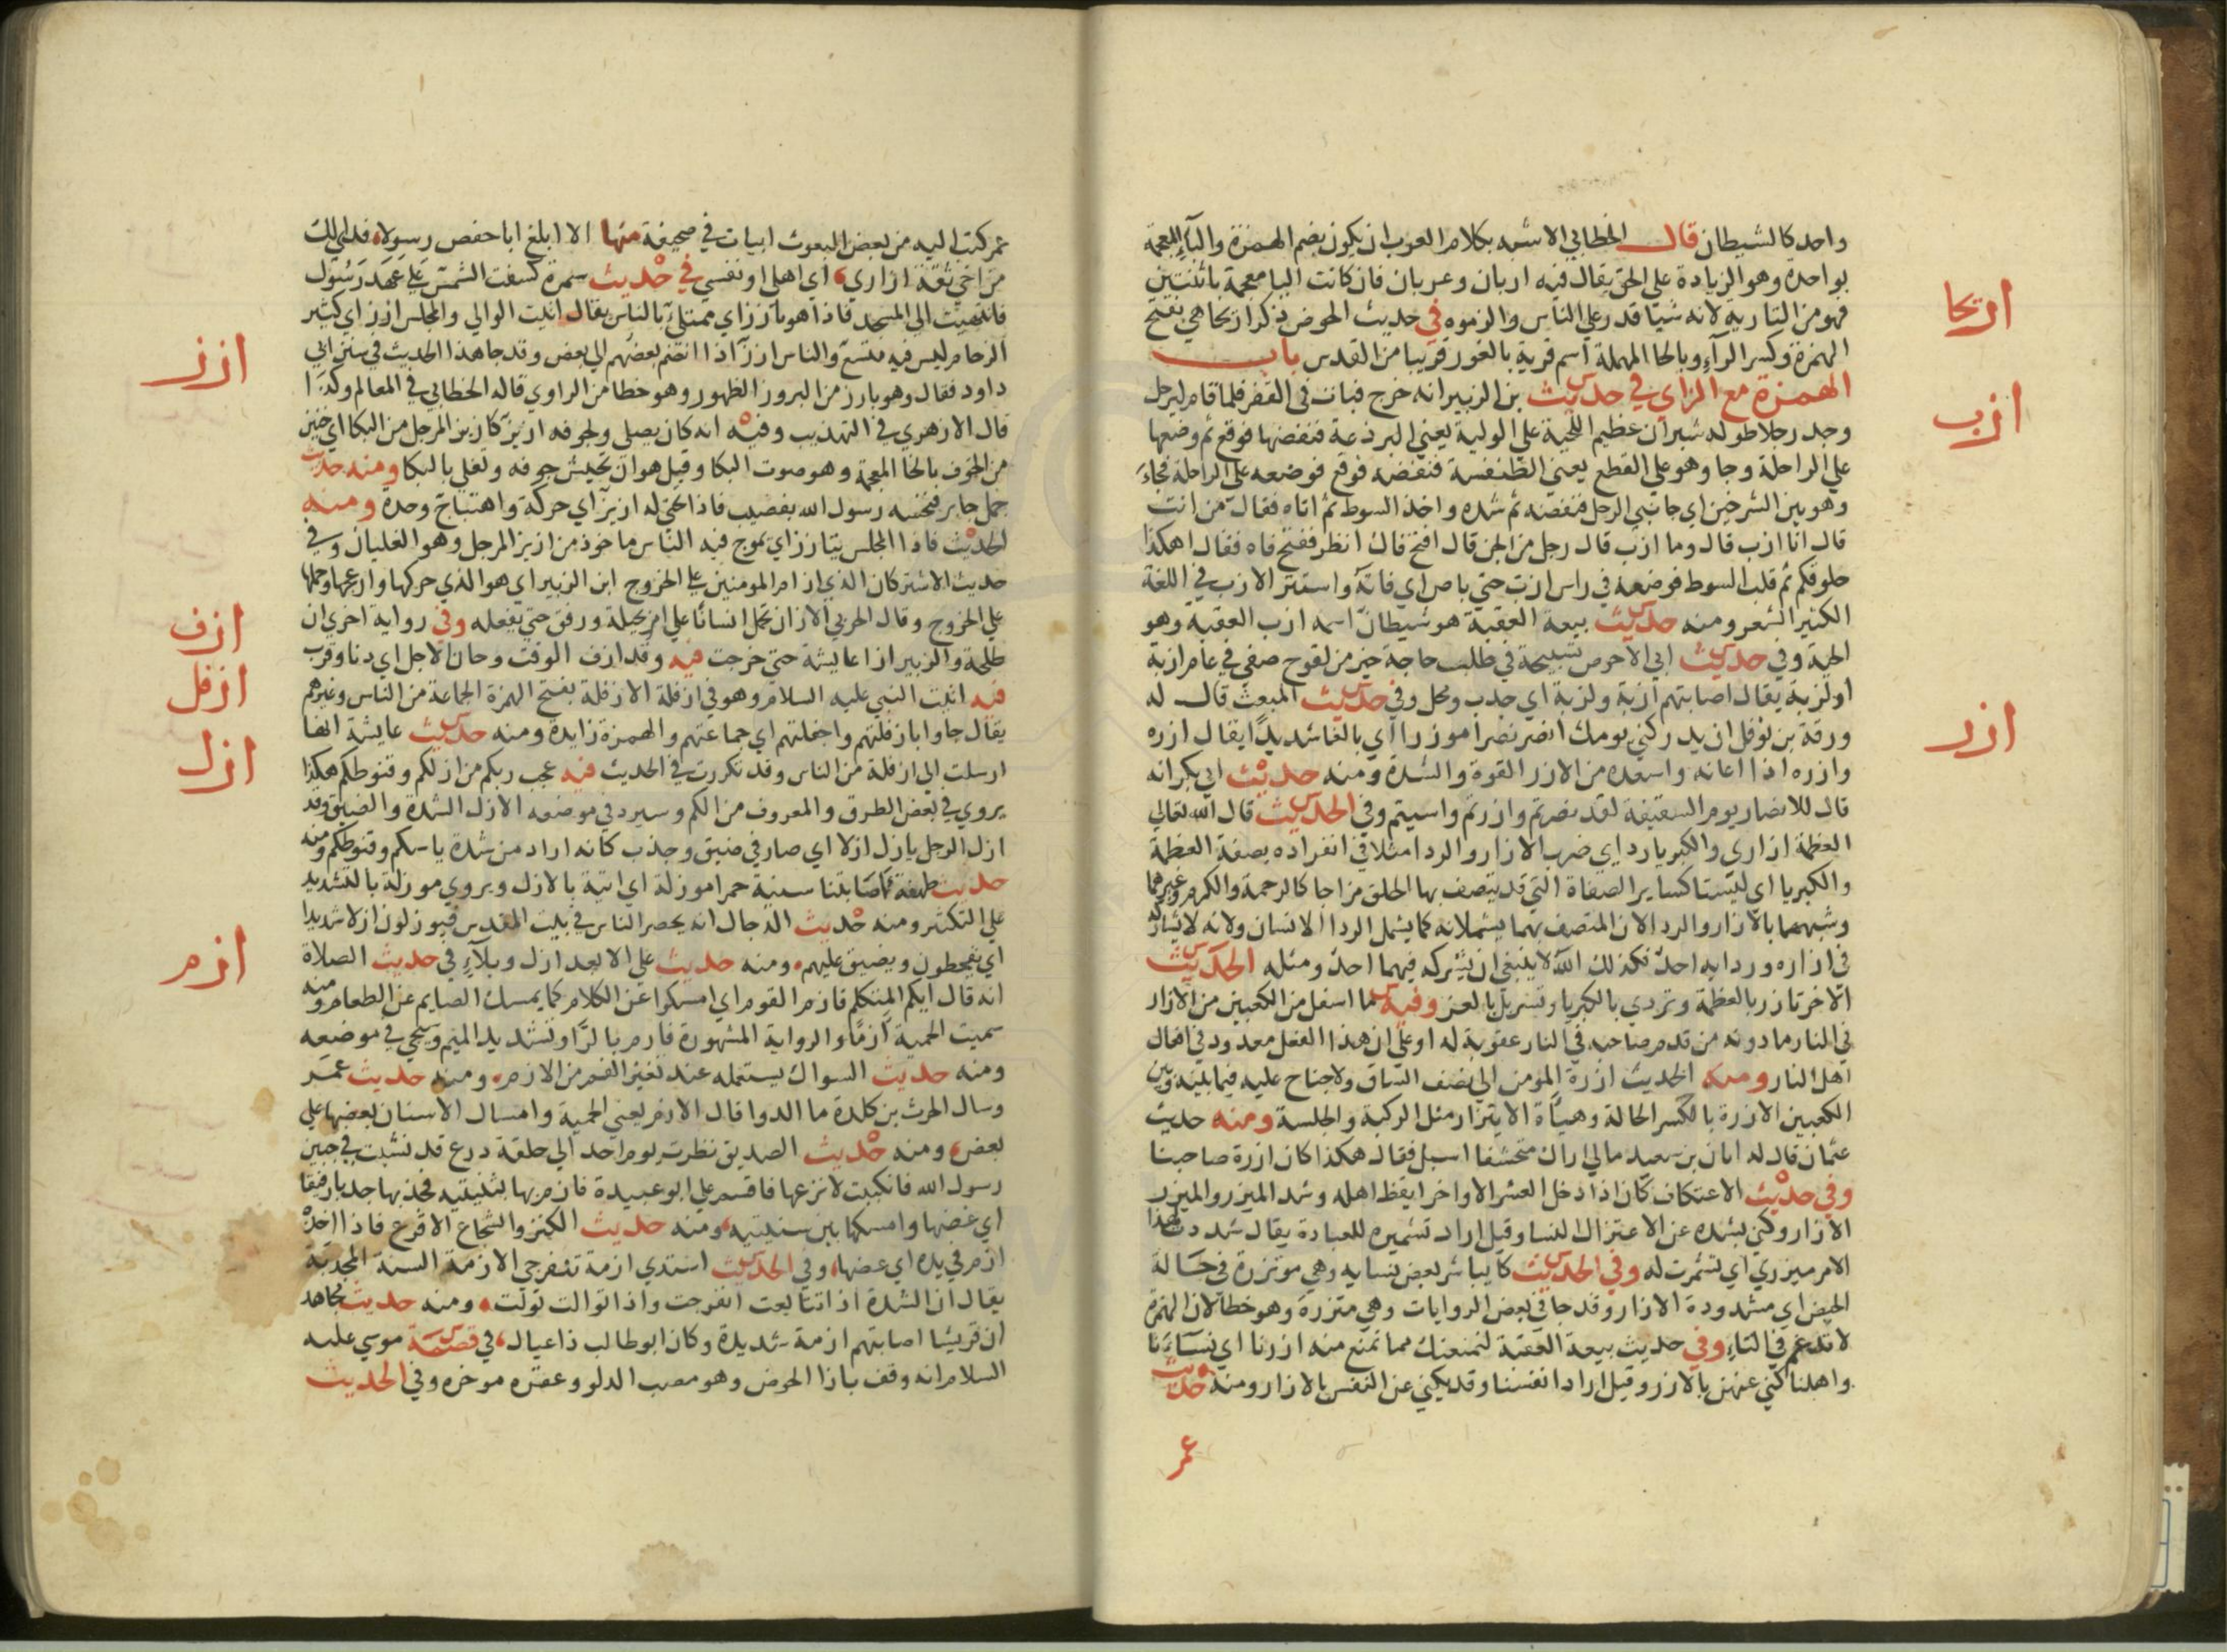 واحد كالشيطان قال الخطابي الاشبه بكلام العرب ان يكون بضم الهمزة والباء المعجمة
بواحدة وهو الزيادة على الحق يقال فيه اربان وعربان فان كانت اليا معجمة باثنتين
فهو من التارية لانه شيا قدر على الناس والزموه في حديث الحوض ذكر اريحا هي بفتح
الهمزة وكسر الراء وبالحا المهملة اسم قرية بالغور قريبا من القدس باب
الهمزة مع الزاي في حديث بن الزبير انه خرج فبات في القفر فلما قام ليرحل
وجد رجلا طوله شبران عظيم اللحية على الولية يعني البرذعة فنفضها فوقع ثم وضعها
على الراحلة وجا وهو على القطع يعني الطنفسة فنفضه فوقع فوضعه على الراحلة فجاء
وهو بين الشرخين اي جانبي الرحل فنفضه ثم شده واخذ السوط ثم اتاه فقال من انت
قال انا ازب قال وما ازب قال رجل من الجن قال افتح فاك انظر ففتح فاه فقال اهكذا
حلوقكم ثم قلب السوط فوضعه في راس ازب حتى باص اي فاته واستتر الازب في اللغة
الكثير الشعر ومنه حديث بيعة العقبة هو شيطان اسمه ازب العقبة وهو
الحية وفي حديث ابي الاحوص تسبيحة في طلب حاجة خير من لقوح صفي في عام ازبة
او لزبة يقال اصابتهم ازبة ولزبة اي جدب ومحل وفي حديث المبعث قال له
ورقة بن نوفل ان يدركني يومك انصرك نصرا موزرا اي بالغا شديدا يقال ازره
وازره اذا اعانه واسعده من الازر القوة والشدة ومنه حديث ابي بكر انه
قال للانصار يوم السقيفة لقد نصرتم وازرتم واسيتم وفي الحديث قال الله تعالى
العظمة ازاري والكبريا ردايي ضرب الازار والردا مثلا في انفراده بصفة العظمة
والكبريا اي ليستا كساير الصفاة التي قد يتصف بها الخلق مزاجا كالرحمة والكرم وغيرهما
وشبههما بالازار والردا لان المتصف بهما يشملانه كما يشمل الردا الانسان ولانه لا يشاركه
في ازاره وردايه احد فكذلك الله لا ينبغي ان يشركه فيهما احد ومثله الحديث
الاخر تازر بالعظمة وتردي بالكبريا وتسربل بالعز وفيه ما اسفل من الكعبين من الازار
في النار ما دونه من قدم صاحبه في النار عقوبة له او على ان هذا الفعل معدود في افعال
اهل النار ومنه الحديث ازرة المومن الى نصف الساق ولا جناح عليه فيما بينه وبين
الكعبين الازرة بالكسر الحالة وهياة الايتزار مثل الركبة والجلسة ومنه حديث
عثمان قال له ابان بن سعيد مالي اراك متحشفا اسبل فقال هكذا كان ازرة صاحبنا
وفي حديث الاعتكاف كان اذا دخل العشر الاواخر ايقظ اهله وشد الميزر والميزر
الازار وكنى بشده عن الاعتزال النسا وقيل اراد تشميره للعبادة يقال شددت لهذا
الامر ميزري اي تشمرت له وفي الحديث كان يباشر بعض نسايه وهي موتزرة في حالة
الحيض اي مشدودة الازار وقد جا في بعض الروايات وهي متزرة وهو خطا لان الهمزة
لا تدغم في التاء وفي حديث بيعة العقبة لنمنعنك مما نمنع منه ازرنا اي نساءنا
واهلنا كنى عنهن بالازر وقيل اراد انفسنا وقد يكنى عن النفس بالازار ومنه حديث
عمر
اريحا
ازب
ازر
عمر كتب اليه من بعض البعوث ابيات في صحيفة منها الا ابلغ ابا حفص رسولا فدى لك
من اخي ثقة ازاري اي اهلي او نفسي في حديث سمرة كسفت الشمس على عهد رسول
فانتهيت الى المسجد فاذا هو بازز اي ممتلئ بالناس يقال اتيت الوالي والمجلس ازز اي كثير
الزحام ليس فيه متسع والناس ازز اذا انضم بعضهم الى بعض وقد جا هذا الحديث في سنن ابي
داود فقال وهو بارز من البروز الظهور وهو خطا من الراوي قاله الخطابي في المعالم وكذا
قال الازهري في التهذيب وفيه انه كان يصلي ولجوفه ازيز كازيز المرجل من البكا اي خنين
من الجوف بالخا المعجمة وهو صوت البكا وقيل هو ان يجيش جوفه ويغلي بالبكا ومنه حديث
جمل جابر فنخسه رسول الله بقضيب فاذا تحتي له ازيز اي حركة واهتياج وحدة ومنه
الحديث فاذا المجلس يتازز اي يموج فيه الناس ماخوذ من ازيز المرجل وهو الغليان وفي
حديث الاشتر كان الذي از ام المومنين على الخروج ابن الزبير اي هو الذي حركها وازعجها وحملها
على الخروج وقال الحربي الاز ان تحمل انسانا على امر بحيلة ورفق حتى يفعله وفي رواية اخرى ان
طلحة والزبير ازا عايشة حتى خرجت فيه وقد ازف الوقت وحان الاجل اي دنا وقرب
فيه اتيت النبي عليه السلام وهو في ازفلة الازفلة بفتح الهمزة الجماعة من الناس وغيرهم
يقال جاوا بازفلتهم واجفلتهم اي جماعتهم والهمزة زايدة ومنه حديث عايشة انها
ارسلت الى ازفلة من الناس وقد تكررت في الحديث فيه عجب ربكم من ازلكم وقنوطكم هكذا
يروي في بعض الطرق والمعروف من الكم وسيرد في موضعه الازل الشدة والضيق وقد
ازل الرجل يازل ازلا اي صار في ضيق وجذب كانه اراد من شدة ياسكم وقنوطكم ومنه
حديث طهفة اصابتنا سنية حمرا موزلة اي اتية بالازل ويروي موزلة بالتشديد
على التكثير ومنه حديث الدجال انه يحصر الناس في بيت المقدس فيوزلون ازلا شديدا
اي يقحطون ويضيق عليهم ومنه حديث علي الا بعد ازل وبلاء في حديث الصلاة
انه قال ايكم المتكلم فازم القوم اي امسكوا عن الكلام كما يمسك الصايم عن الطعام ومنه
سميت الحمية ازما والرواية المشهورة فارم بالرا وتشديد الميم وسيجي في موضعه
ومنه حديث السواك يستعمله عند تغير الفم من الازم ومنه حديث عمر
وسال الحرث بن كلدة ما الدوا قال الازم يعني الحمية وامساك الاسنان بعضها على
بعض ومنه حديث الصديق نظرت يوم احد الى حلقة درع قد نشبت في جبين
رسول الله فانكببت لانزعها فاقسم علي ابو عبيدة فازم بها بثنيتيه فجذبها جذبا رفيقا
اي عضها وامسكها بين سنيتيه ومنه حديث الكنز والشجاع الاقرع فاذا اخذ
ازم في يده اي عضها وفي الحديث استدي ازمة تنفرجي الازمة السنة المجدبة
يقال ان الشدة اذا تتابعت انفرجت واذا توالت تولت ومنه حديث مجاهد
ان قريشا اصابتهم ازمة شديدة وكان ابو طالب ذا عيال في قصة موسي عليه
السلام انه وقف بازا الحوض وهو مصب الدلو وعقره موخره وفي الحديث
ازز
ازف
ازفل
ازل
ازم